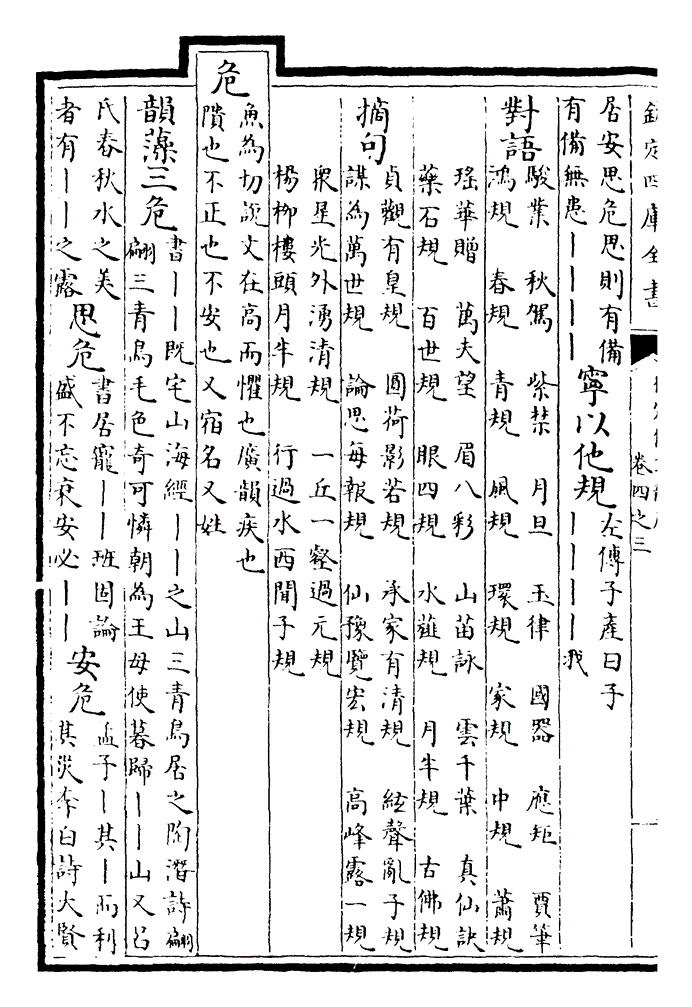 欽定四庫全書
卷四之三
居安思危思則有備
有備無患丨丨丨
寧以他規
左傳子產曰子
丨丨丨丨我
對語
駿業 秋駕 紫禁 月旦 玉律 國器 應矩 賈筆
鴻規 春規 青規 風規 環規 家規 中規 蕭規
瑤華贈 萬夫望 眉八彩 山苗詠 雲千葉 真仙訣
藥石規 百世規 眼四規 水薤規 月半規 古佛規
摘句
貞觀有皇規 圓荷影若規 承家有清規 絃聲亂子規
謀為萬世規 論思每報規 仙豫覽宏規 高峰露一規
眾星光外湧清規 一丘一壑過元規
楊柳樓頭月半規 行過水西聞子規
危
魚為切說文在高而懼也廣韻疾也
隤也不正也不安也又宿名又姓
韻藻
三危
書丨丨既宅山海經丨丨之山三青鳥居之陶潛詩翩
翩三青鳥毛色奇可憐朝為王母使暮歸丨丨山又呂
氏春秋水之美
者有丨丨之露
思危
書居寵丨丨班固論
盛不忘衰安必丨丨
安危
孟子丨其丨而利
其災李白詩大賢